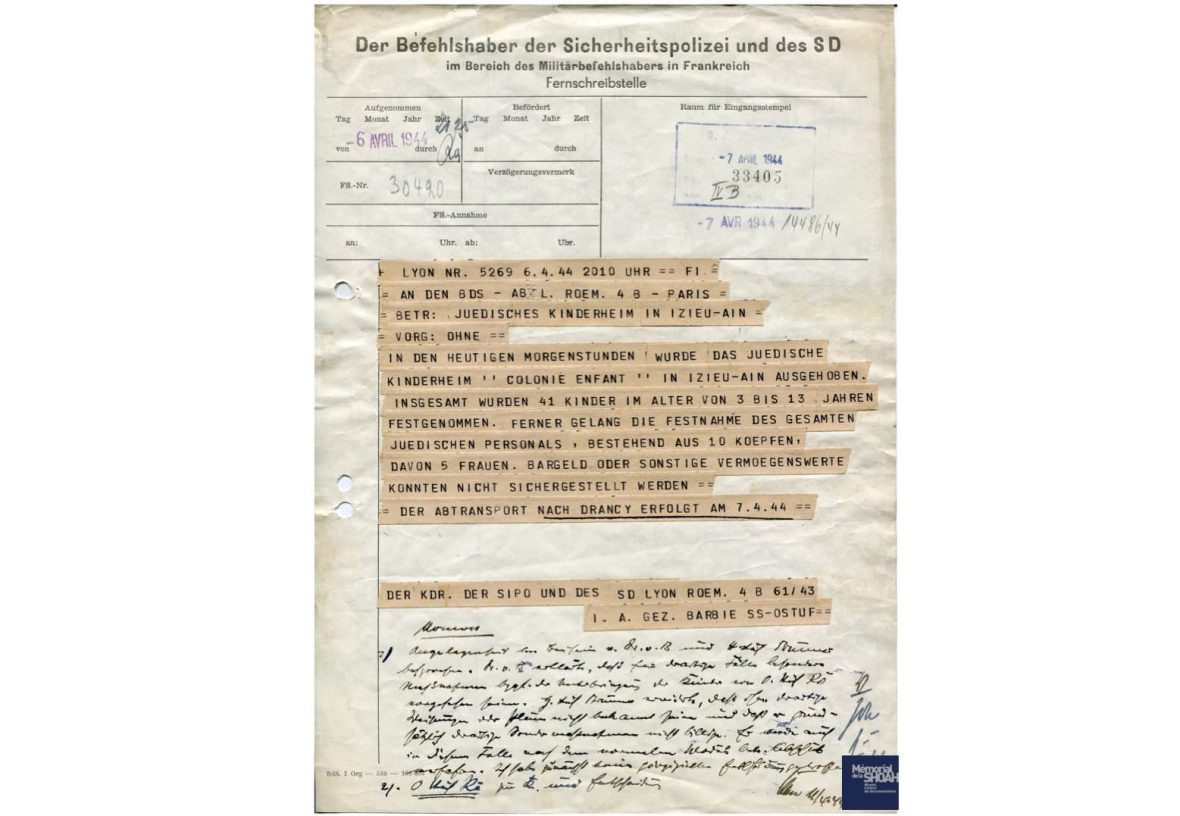 Der Befehlshaber der Sicherheitspolizei und des SD
im Bereich des Militärbefehlshabers in Frankreich
Fernschreibstelle
Aufgenommen
Tag Monat Jahr Zeit
-6 AVRIL 1944
von durch
Befördert
Tag Monat Jahr Zeit
an durch
Raum für Eingangsstempel
-7 APRIL 1944
33405
IV B
-7 AVR 1944 14486/44
FS.-Nr. 30420
Verzögerungsvermerk
FS.-Annahme
an: Uhr. ab: Uhr.
+ LYON NR. 5269 6.4.44 2010 UHR == FI =
= AN DEN BDS - ABTL. ROEM. 4 B - PARIS =
= BETR: JUEDISCHES KINDERHEIM IN IZIEU-AIN =
= VORG: OHNE ==
IN DEN HEUTIGEN MORGENSTUNDEN WURDE DAS JUEDISCHE
KINDERHEIM '' COLONIE ENFANT '' IN IZIEU-AIN AUSGEHOBEN.
INSGESAMT WURDEN 41 KINDER IM ALTER VON 3 BIS 13 JAHREN
FESTGENOMMEN. FERNER GELANG DIE FESTNAHME DES GESAMTEN
JUEDISCHEN PERSONALS, BESTEHEND AUS 10 KOEPFEN,
DAVON 5 FRAUEN. BARGELD ODER SONSTIGE VERMOEGENSWERTE
KONNTEN NICHT SICHERGESTELLT WERDEN ==
= DER ABTRANSPORT NACH DRANCY ERFOLGT AM 7.4.44 ==
DER KDR. DER SIPO UND DES SD LYON ROEM. 4 B 61/43
I. A. GEZ. BARBIE SS-OSTUF==
1) Angelegenheit v. Dr. v. B und
besprochen. Dr. v. B erklärte, daß für derartige Fälle besondere
Maßnahmen der Unterbringung der Kinder von
vorgesehen seien. daß ihm derartige
nicht bekannt seien und daß er
derartige nicht billige. Er
in diesem Falle nach dem normalen
Ich habe zunächst keine
2).
BdS. I Org — 500
Mémorial
de la SHOAH
Musée,
Centre
de documentation